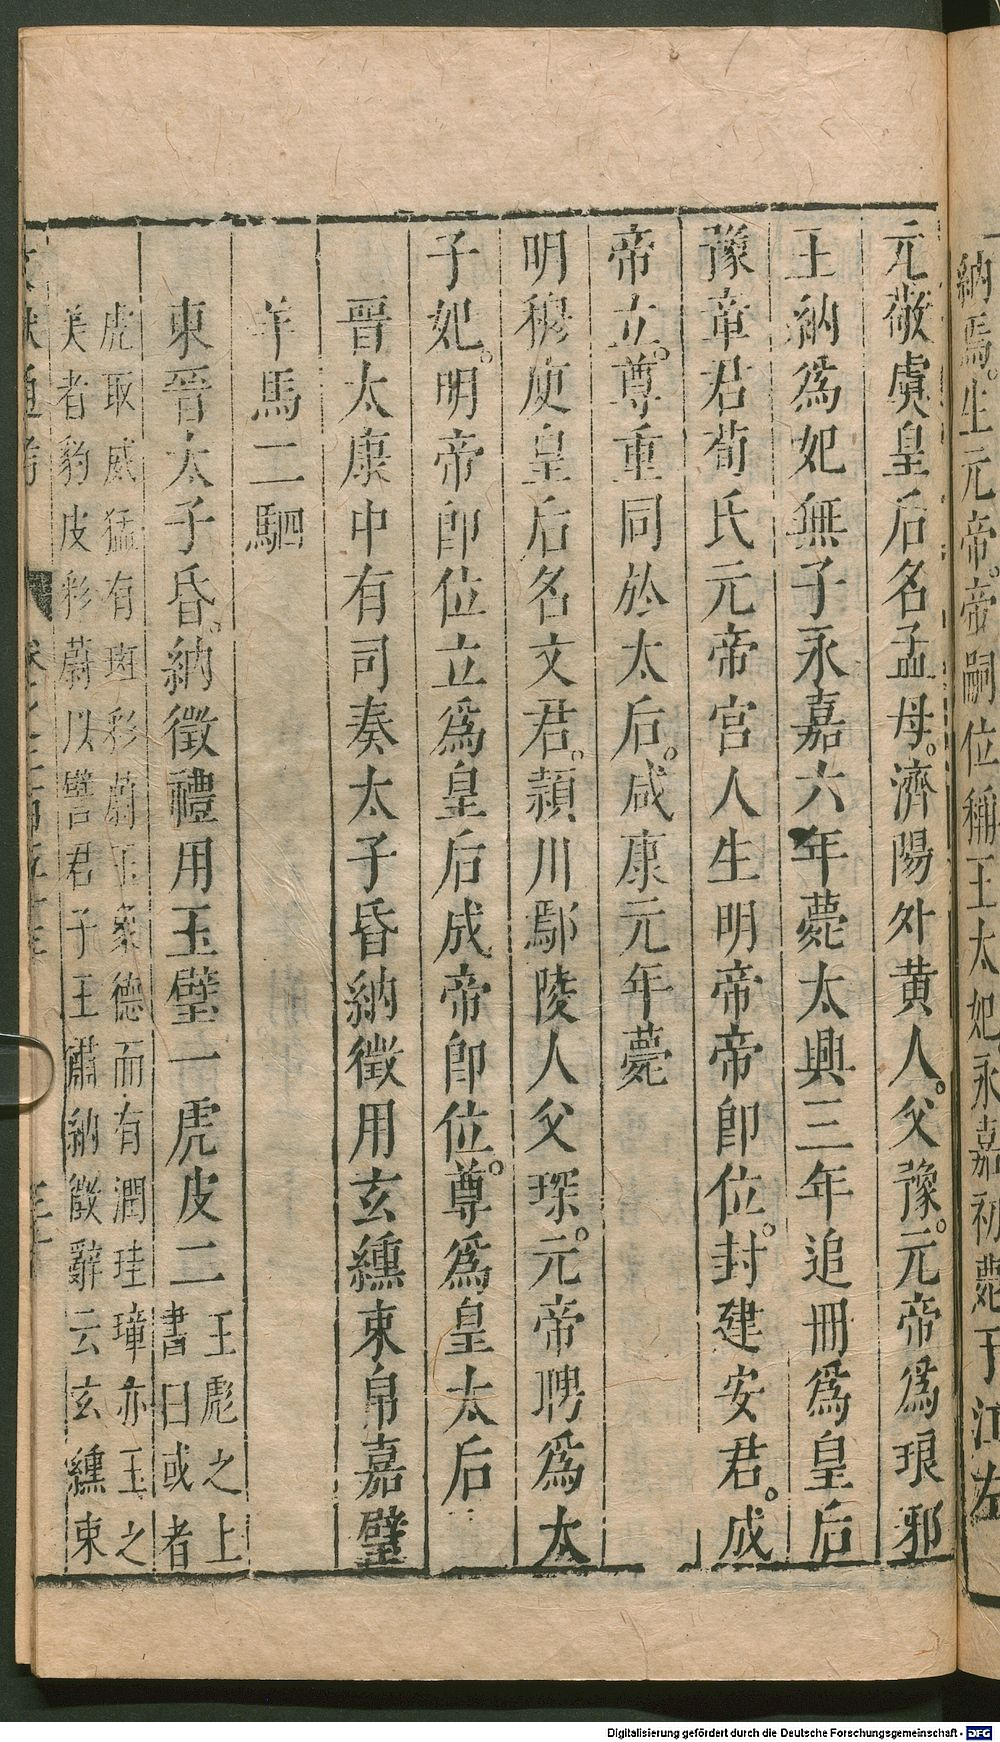 納焉。生元帝。帝嗣位稱王太妃。永嘉初薨于江左
元敬虞皇后名孟母。濟陽外黄人。父豫。元帝為琅邪
王納為妃無子永嘉六年薨太興三年追冊為皇后
豫章君荀氏元帝宮人生明帝帝即位。封建安君。成
帝立。尊重同於太后。咸康元年薨
明穆庾皇后名文君。潁川鄢陵人父琛。元帝聘為太
子妃。明帝即位立為皇后成帝即位。尊為皇太后
晉太康中有司奏太子昏納徵用玄纁束帛嘉璧
羊馬二駟
東晉太子昏。納徵禮用玉璧一虎皮二
王彪之上
書曰或者
虎取威猛有斑彩蔚玉象德而有潤珪璋亦玉之
美者豹皮彩蔚以譬君子王肅納徵辭云玄纁束
文獻通考
Digitalisierung gefördert durch die Deutsche Forschungsgemeinschaft - DFG